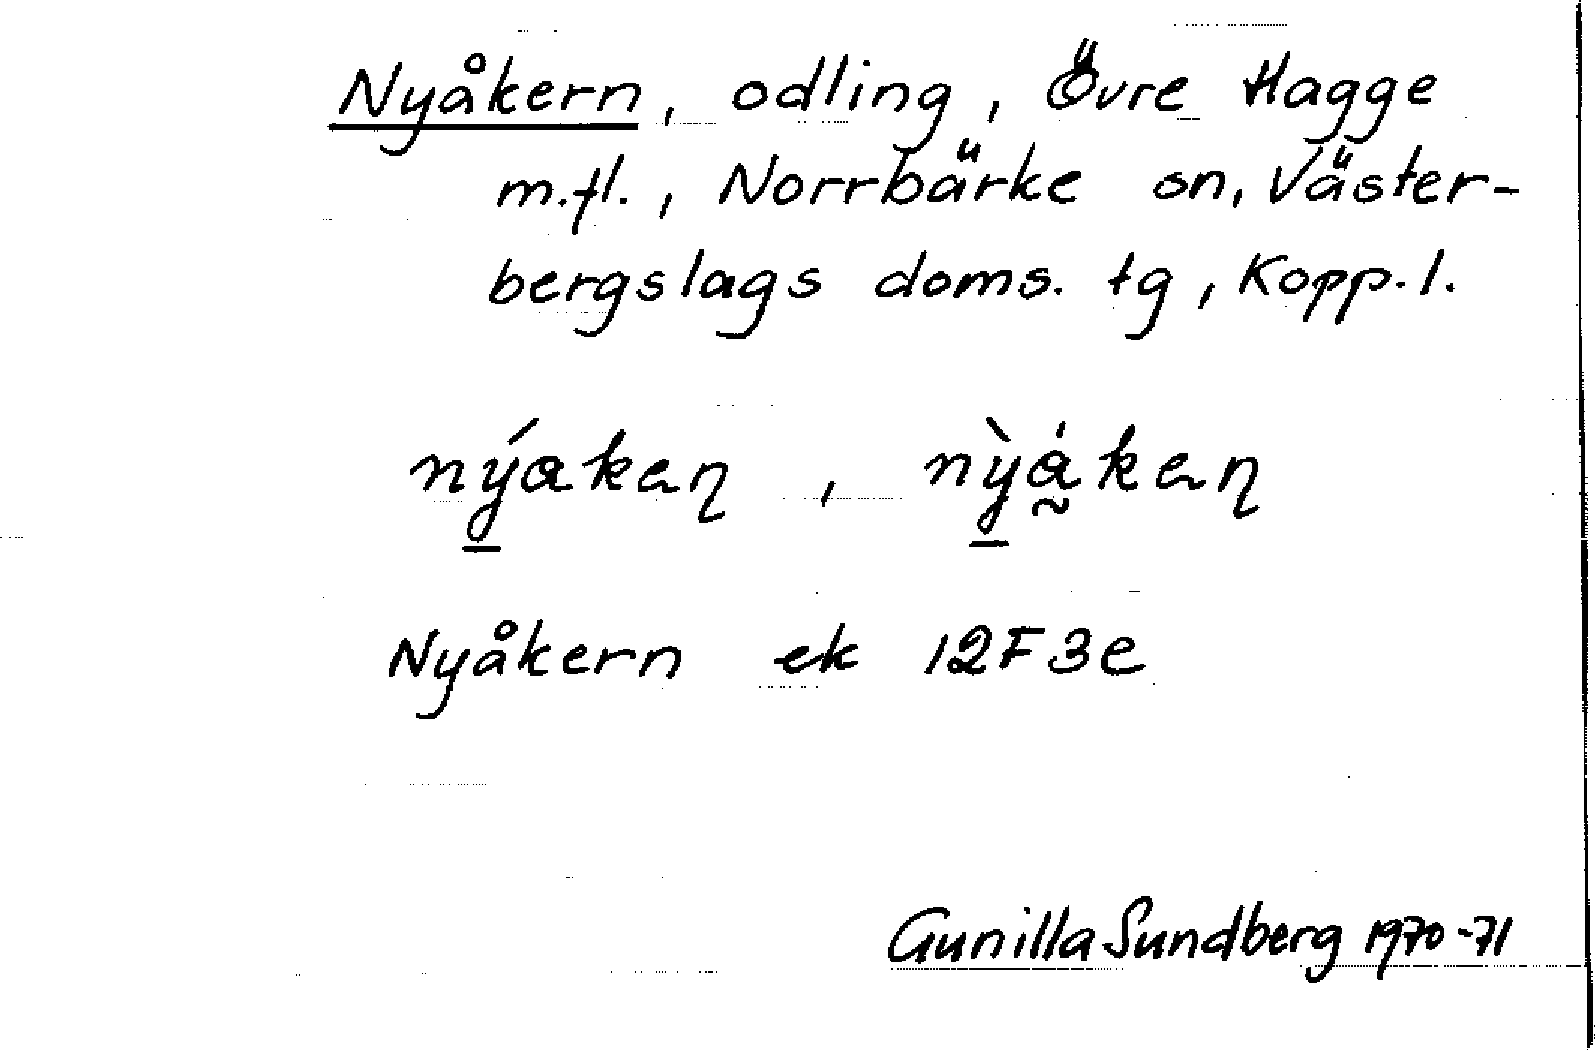 Nyåkern, odling, Övre Hagge
m.fl., Norrbärke sn, Väster-
bergslags doms. tg, Kopp.l.
nýakaɳ, nỳákaɳ
Nyåkern ek 12F3e
Gunilla Sundberg 1970-71